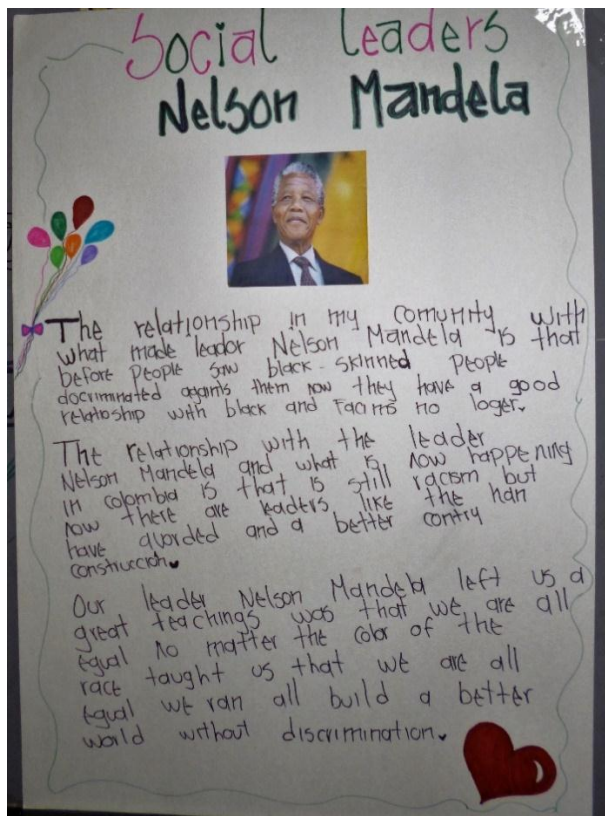 Social Leaders
Nelson Mandela
The relationship in my comunity with
what made leader Nelson Mandela is that
before people saw black-skinned people
docriminated againts them now they have a good
relatioship with black and racims no loger.
The relationship with the leader
Nelson Mandela and what is now happening
in colombia is that is still racism but
now there are leaders like the han
have avorded and a better contry
construccion.
Our leader Nelson Mandela left us a
great teachings was that we are all
equal no matter the color of the
race taught us that we are all
equal we ran all build a better
world without discrimination.